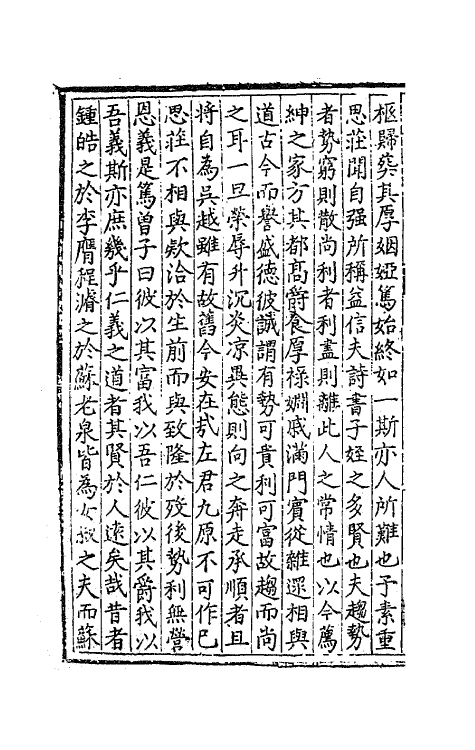 柩歸葬其厚姻婭篤始終如一斯亦人所難也予素重
思莊聞自强所稱益信夫詩書子姪之多賢也夫趨勢
者勢窮則散尚利者利盡則離此人之常情也以今薦
紳之家方其都高爵食厚禄婣戚滿門賓從雜遝相與
道古今而譽盛德彼誠謂有勢可貴利可富故趨而尚
之耳一旦榮辱升沉炎凉異態則向之奔走承順者且
將自為吳越雖有故舊今安在哉左君九原不可作已
思莊不相與欵洽於生前而與致隆於歿後勢利無營
恩義是篤曾子曰彼以其富我以吾仁彼以其爵我以
吾義斯亦庶幾乎仁義之道者其賢於人遠矣哉昔者
鍾皓之於李膺程濬之於蘇老泉皆為女叔之夫而蘇